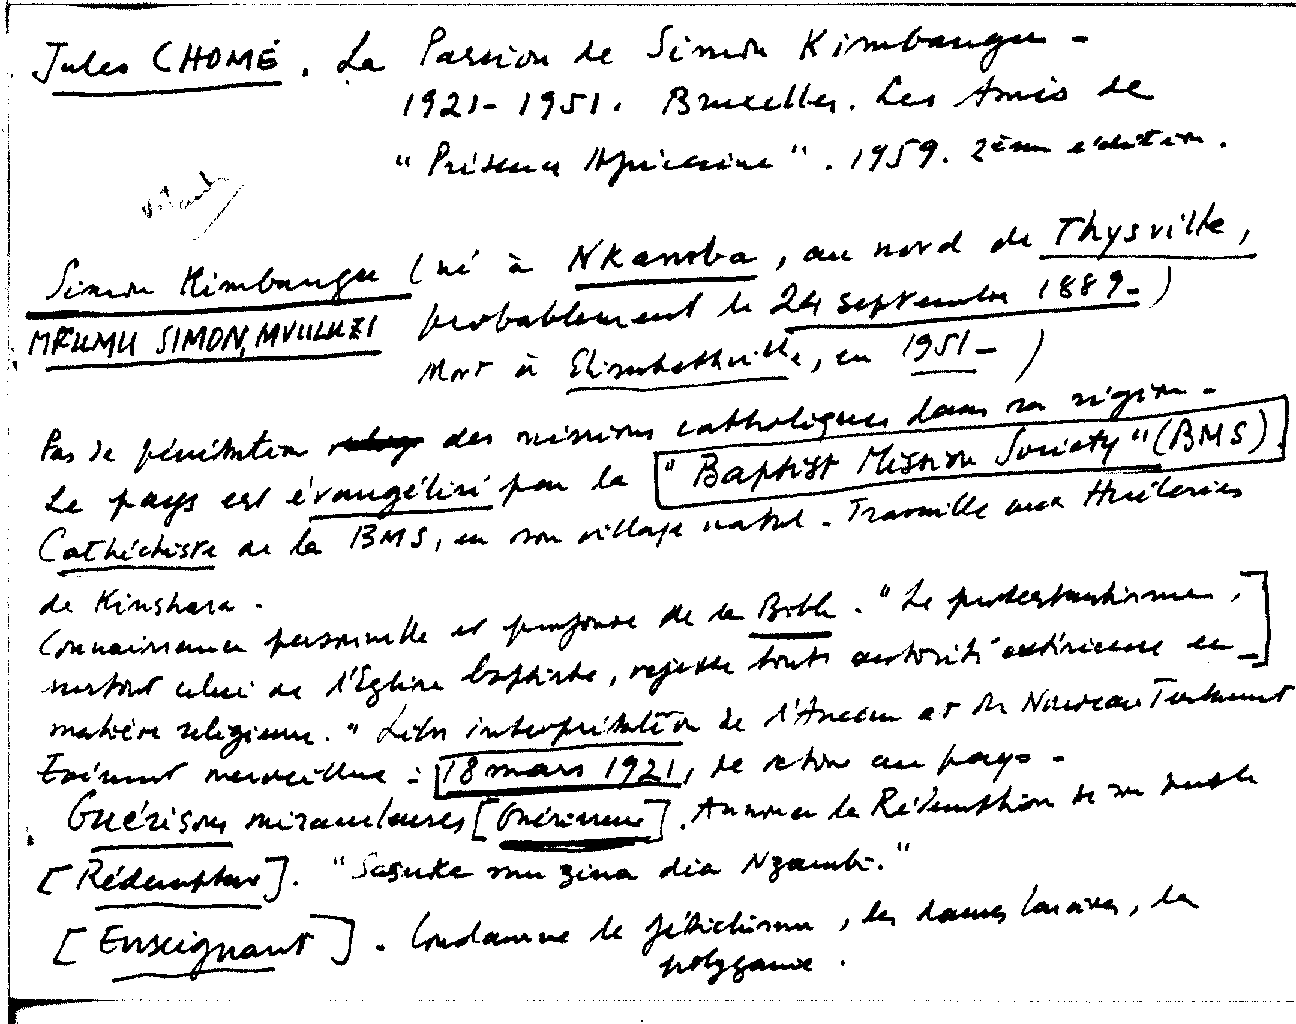 Jules CHOMÉ. La Passion de Simon Kimbangu -
1921-1951. Bruxelles. Les Amis de
"Présence Africaine". 1959. 2ème édition.
Simon Kimbangu (né à Nkamba, au nord de Thysville,
MFUMU SIMON, MVULUZI probablement le 24 septembre 1889-)
Mort à Elisabethville, en 1951-)
Pas de pénétration des missions catholiques dans sa région-
Le pays est évangélisé par la "Baptist Mission Society" (BMS).
Cathéchiste de la BMS, en son village natal- Travaille aux Huileries
de Kinshasa.
Connaissance personnelle et profonde de la Bible. "Le protestantisme,
surtout celui de l'Eglise baptiste, rejette toute autorité extérieure en
matière religieuse." Libre interprétation de l'Ancien et du Nouveau Testament
Evénement merveilleux : 18 mars 1921, de retour au pays-
Guérisons miraculeuses [Guérisseur]. Annonce la Rédemption de son peuple
[Rédempteur]. "Sasuka mu zina dia Nzambi."
[Enseignant]. Condamne le fétichisme, les danses lascives, la
polygamie.